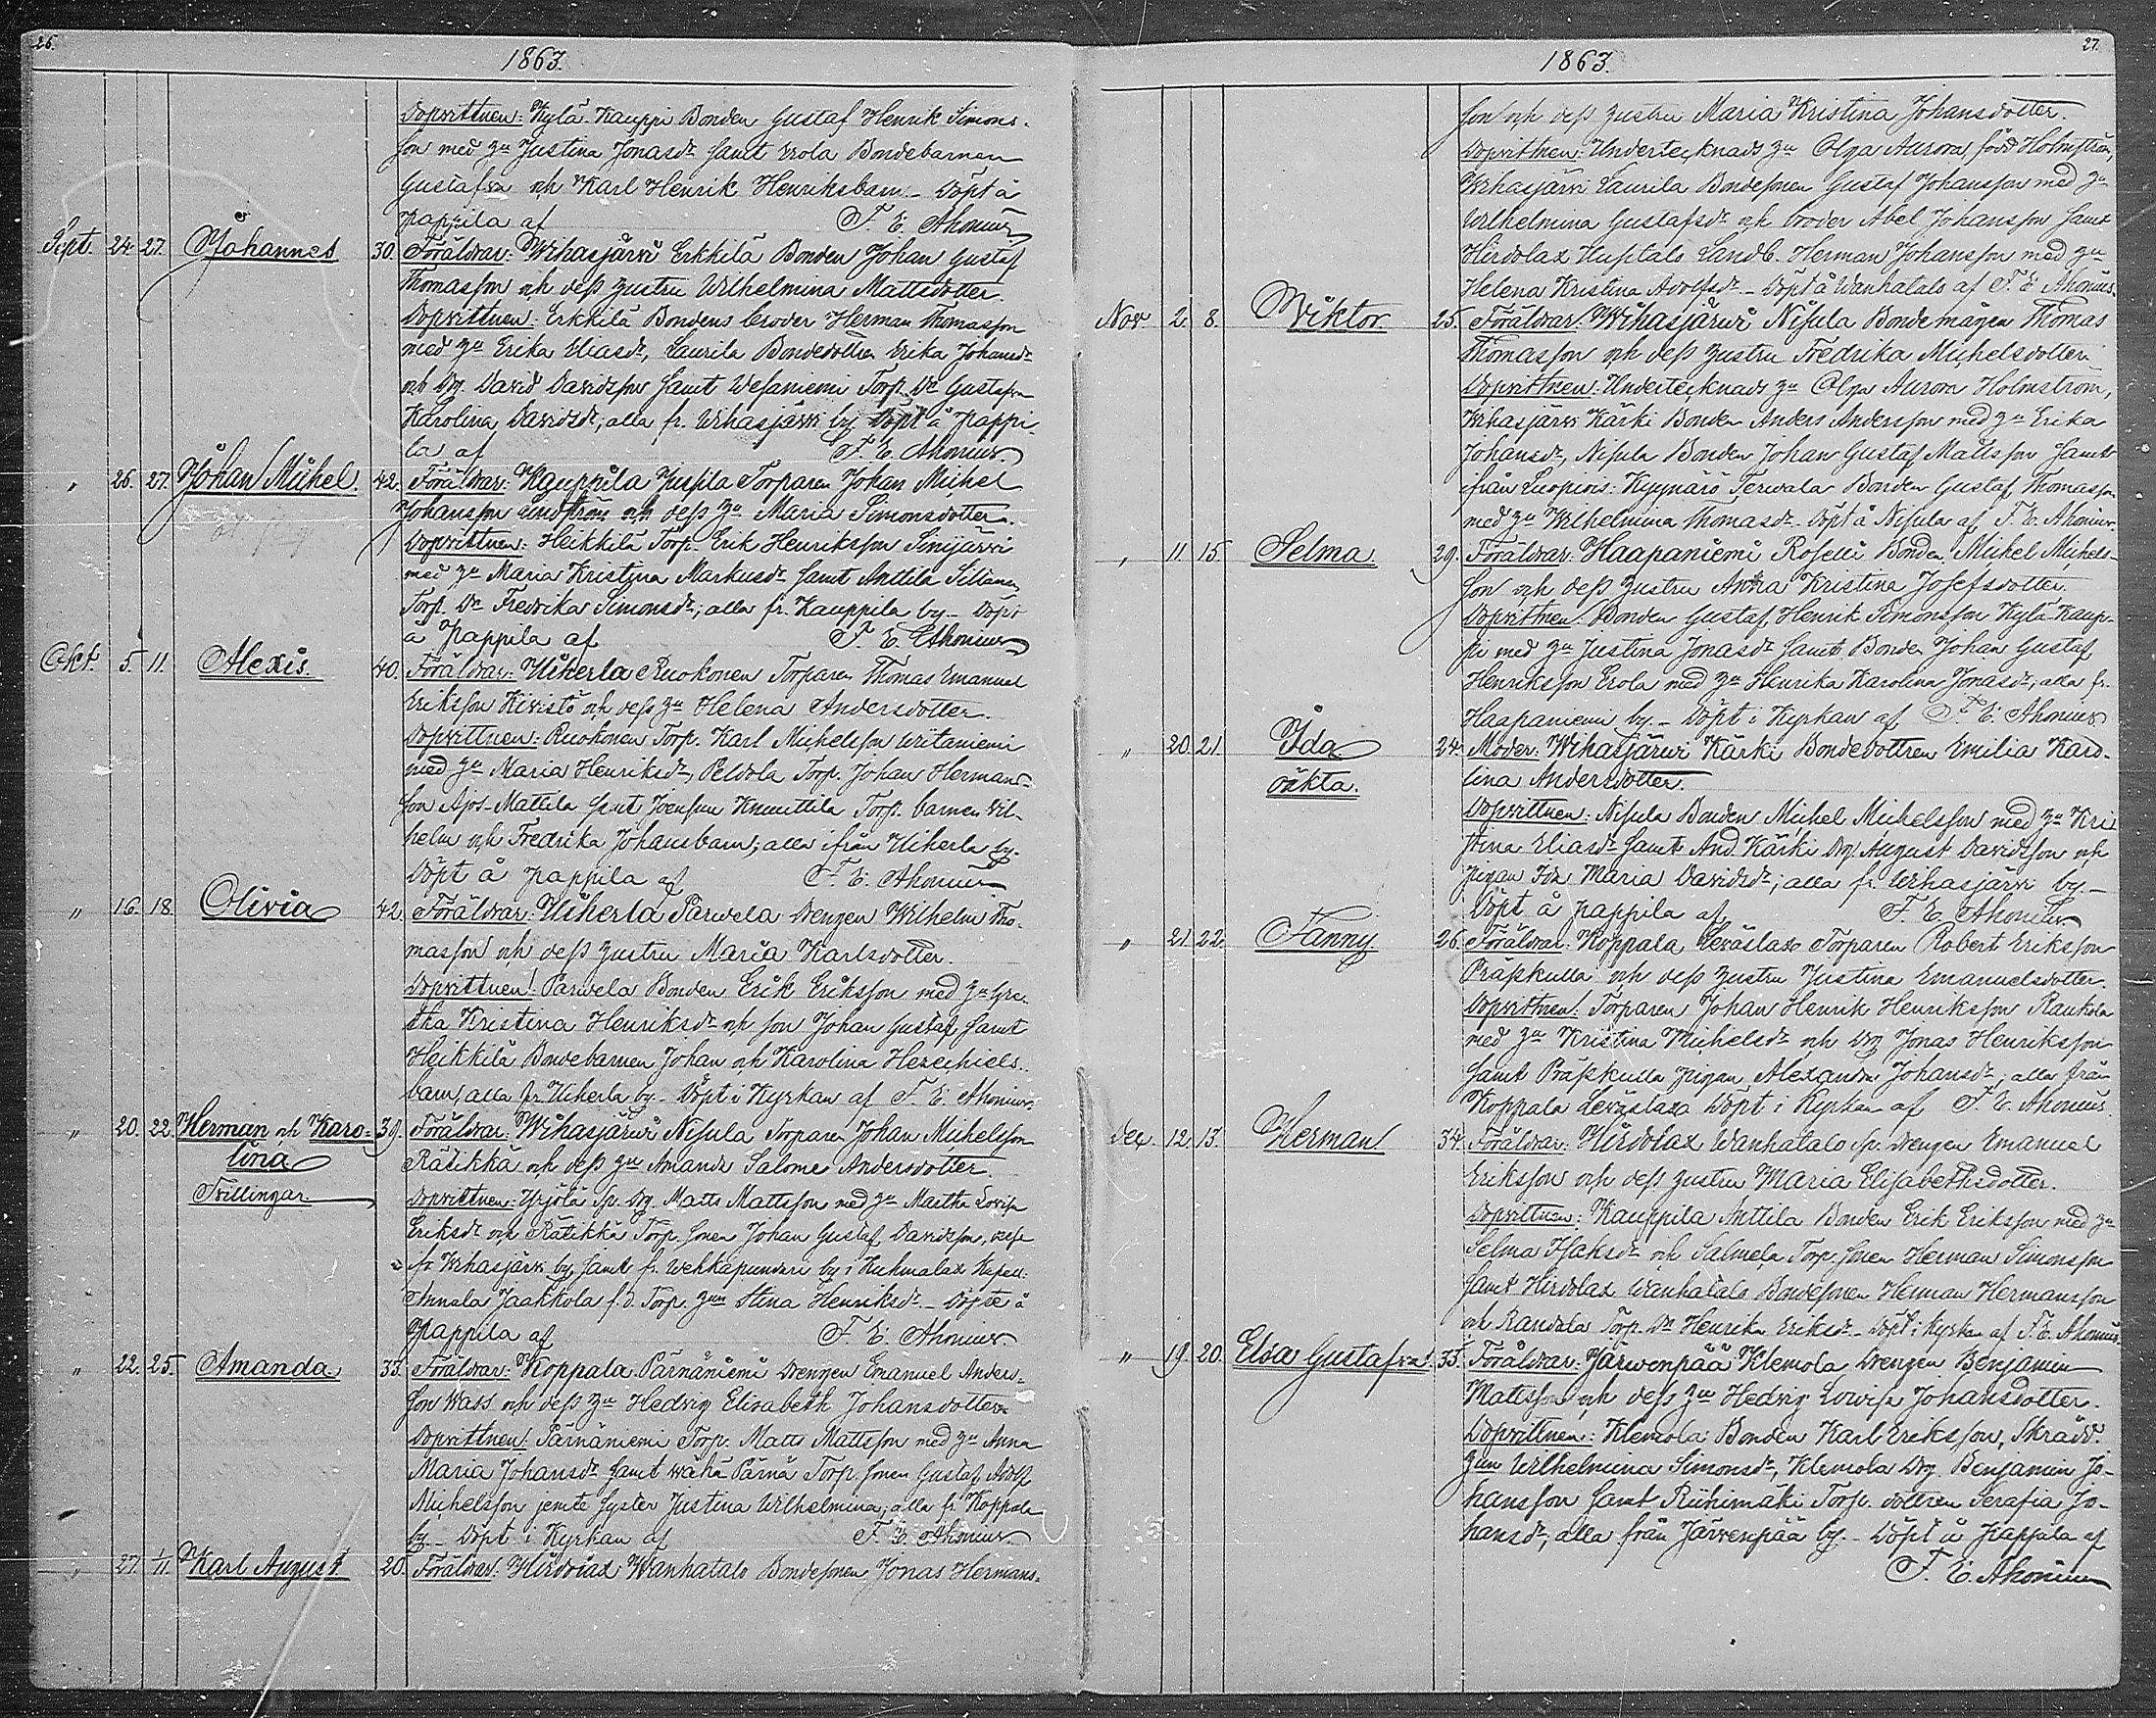 26.
1863.
Dopvittnen: Kylä-Kauppi Bonden Gustaf Henrik Simons-
son med hu Justina Jonasdr samt Erola Bondebarnen
Gustafva och Karl Henrik Henriksbarn. Döpt å
pappila af F. E. Ahonius
Sept. 24. 27. Johannes 30. Föräldrar: Wihasjärvi Erkkilä Bonden Johan Gustaf
Thomasson och dess hustru Wilhelmina Mattsdotter.
Dopvittnen: Erkkilä Bondens broder Herman Thomasson
med hu Erika Eliasdr, Laurila Bondedottren Erika Johansdr
och Drg. David Davidsson samt Wesaniemi Torp. Dr Gustafva
Karolina Davidsdr; alla fr. Wihasjärvi by. Döpt å pappi-
la af F. E. Ahonius.
„ 26. 27. Johan Mickel. 42. Föräldrar: Kauppila Jussila Torparen Johan Mickel
Johansson Lindström och dess hu Maria Simonsdotter.
Dopvittnen: Heikkilä Torp. Erik Henriksson Sinijärvi
med hu Maria Kristina Markusdr samt Anttila
Torp. Dr Fredrika Simonsdr; alla fr. Kauppila by. Döpt
å pappila af F. E. Ahonius
Okt. 5. 11. Alexis. 40. Föräldrar: Uiherla Ruokonen Torparen Thomas Emanuel
Eriksson Kivistö och dess hu Helena Andersdotter.
Dopvittnen: Ruokonen Torp. Karl Mickelsson Wiitaniemi
med hu Maria Henriksdr, Peldola Torp. Johan Hermans-
son Ajos-Mattila samt Joensuu Knuuttila Torp. barnen Wil-
helm och Fredrika Johansbarn; alla ifrån Uiherla by.
Döpt å pappila af F. E. Ahonius
„ 16. 18. Olivia 42. Föräldrar: Uiherla Parvela Drengen Wilhelm Tho-
masson och dess hustru Maria Karlsdotter.
Dopvittnen: Parvela Bonden Erik Eriksson med hu Gre-
tha Kristina Henriksdr och son Johan Gustaf, samt
Heikkilä Bondebarnen Johan och Karolina Hezechiels-
barn; alla fr. Uiherla by. Döpt i Kyrkan af F. E. Ahonius.
„ 20. 22. Herman och Karo- 39. Föräldrar: Wihasjärvi Nisula Torparen Johan Mickelsson
lina Rätikkä och dess hu Amanda Salome Andersdotter.
Tvillingar. Dopvittnen: Yrjölä Sp. Drg. Matts Mattsson med hu Martha Lovisa
Eriksdr och Rätikkä Torp. sonen Johan Gustaf Davidsson,
fr. Wihasjärvi by samt fr. Wehkapuntari by i Kuhmalax Kapell:
Annala Jaakkola f.d. Torp. hun Stina Henriksdr. Döpte å
pappila af F. E. Ahonius.
„ 22. 25. Amanda. 33. Föräldrar: Koppala Pärnäniemi Drengen Emanuel Anders-
son Wass och dess hu Hedvig Elisabeth Johansdotter.
Dopvittnen: Pärnäniemi Torp. Matts Mattsson med hu Anna
Maria Johansdr samt Wähä-Pärnä Torp. sonen Gustaf Adolf
Mickelsson jemte syster Justina Wilhelmina; alla fr. Koppala
by. Döpt i Kyrkan af F. E. Ahonius.
„ 27. 1/11. Karl August 20. Föräldrar: Hirdolax Wanhatalo Bondesonen Jonas Hermans-
27.
1863.
son och dess hustru Maria Kristina Johansdotter.
Dopvittnen: Undertecknads hu Olga Aurora född Holmström,
Wihasjärvi Laurila Bondesonen Gustaf Johansson med hu
Wilhelmina Gustafsdr och broder Abel Johansson samt
Hirdolax Landb. Herman Johansson med hu
Helena Kristina Adolfsdr. Döpt å Wanhatalo af F. E. Ahonius.
Nov 2. 8. Wiktor 25. Föräldrar: Wihasjärvi Nisula Bondemågen Thomas
Thomasson och dess hustru Fredrika Mickelsdotter.
Dopvittnen: Undertecknads hu Olga Aurora Holmström,
Wihasjärvi Kärki Bonden Anders Andersson med hu Erika
Johansdr, Nisula Bonden Johan Gustaf Mattsson samt
ifrån Luopiois: Kyynärö Terwala Bonden Gustaf Thomasson
med hu Wilhelmina Thomasdr. Döpt å Nisula af F. E. Ahonius.
„ 11. 15. Selma. 29. Föräldrar: Haapaniemi Roselli Bonden Mickel Mickels-
son och dess hustru Anna Kristina Josefsdotter.
Dopvittnen: Bonden Gustaf Henrik Simonsson Kylä-Kaup-
pi med hu Justina Jonasdr samt Bonden Johan Gustaf
Henriksson Erola med hu Henrika Karolina Jonasdr, alla fr.
Haapaniemi by. Döpt i Kyrkan af F. E. Ahonius
„ 20. 21. Ida 24. Moder: Wihasjärvi Kärki Bondedottren Emilia Karo-
oäkta. lina Andersdotter.
Dopvittnen: Nisula Bonden Mickel Mickelsson med hu Kri-
stina Eliasdr samt And. Kärki Drg August Davidsson och
pigan Ida Maria Davidsdr; alla fr. Wihasjärvi by.
Döpt å pappila af F. E. Ahonius
„ 21. 22. Fanny 26. Föräldrar: Koppala Leväslax Torparen Robert Eriksson
Präskulla och dess hustru Justina Emanuelsdotter.
Dopvittnen: Torparen Johan Henrik Henriksson Raukola
med hu Kristina Mickelsdr och Drg Jonas Henriksson
samt Präskulla pigan Alexandra Johansdr; alla från
Koppala Leväslax. Döpt i Kyrkan af F. E. Ahonius.
Dec. 12. 13. Herman 34. Föräldrar: Hirdolax Wanhatalo Sp. Drengen Emanuel
Eriksson och dess hustru Maria Elisabethsdotter.
Dopvittnen: Kauppila Anttila Bonden Erik Eriksson med hu
Selma Isaksdr och Salmela Torp. sonen Herman Simonsson
samt Hirdolax Wanhatalo Bondesonen Herman Hermansson
och Randala Torp. Dr Henrika Eriksdr. Döpt i Kyrkan af F. E. Ahonius.
„ 19. 20. Elva Gustafva 33. Föräldrar: Järvenpää Klemola Drengen Benjamin
Mattsson och dess hu Hedvig Lovisa Johansdotter.
Dopvittnen: Klemola Bonden Karl Eriksson, Skrädd.
hun Wilhelmina Simonsdr, Klemola Drg. Benjamin Jo-
hansson samt Riihimäki Torp. dottren Serafia Jo-
hansdr, alla från Järvenpää by. Döpt å pappila af
F. E. Ahonius